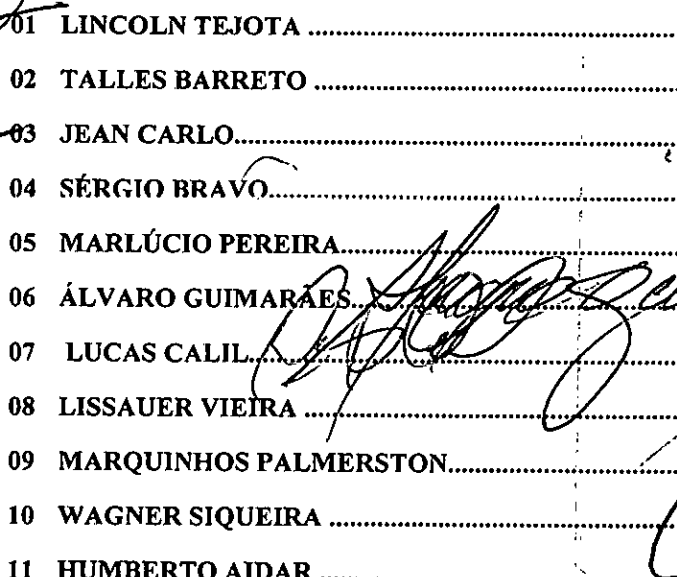 01 LINCOLN TEJOTA ........................................................
02 TALLES BARRETO ........................................................
03 JEAN CARLO........................................................
04 SÉRGIO BRAVO........................................................
05 MARLÚCIO PEREIRA........................................................
06 ÁLVARO GUIMARÃES........................................................
07 LUCAS CALIL........................................................
08 LISSAUER VIEIRA ........................................................
09 MARQUINHOS PALMERSTON........................................................
10 WAGNER SIQUEIRA ........................................................
11 HUMBERTO AIDAR ........................................................